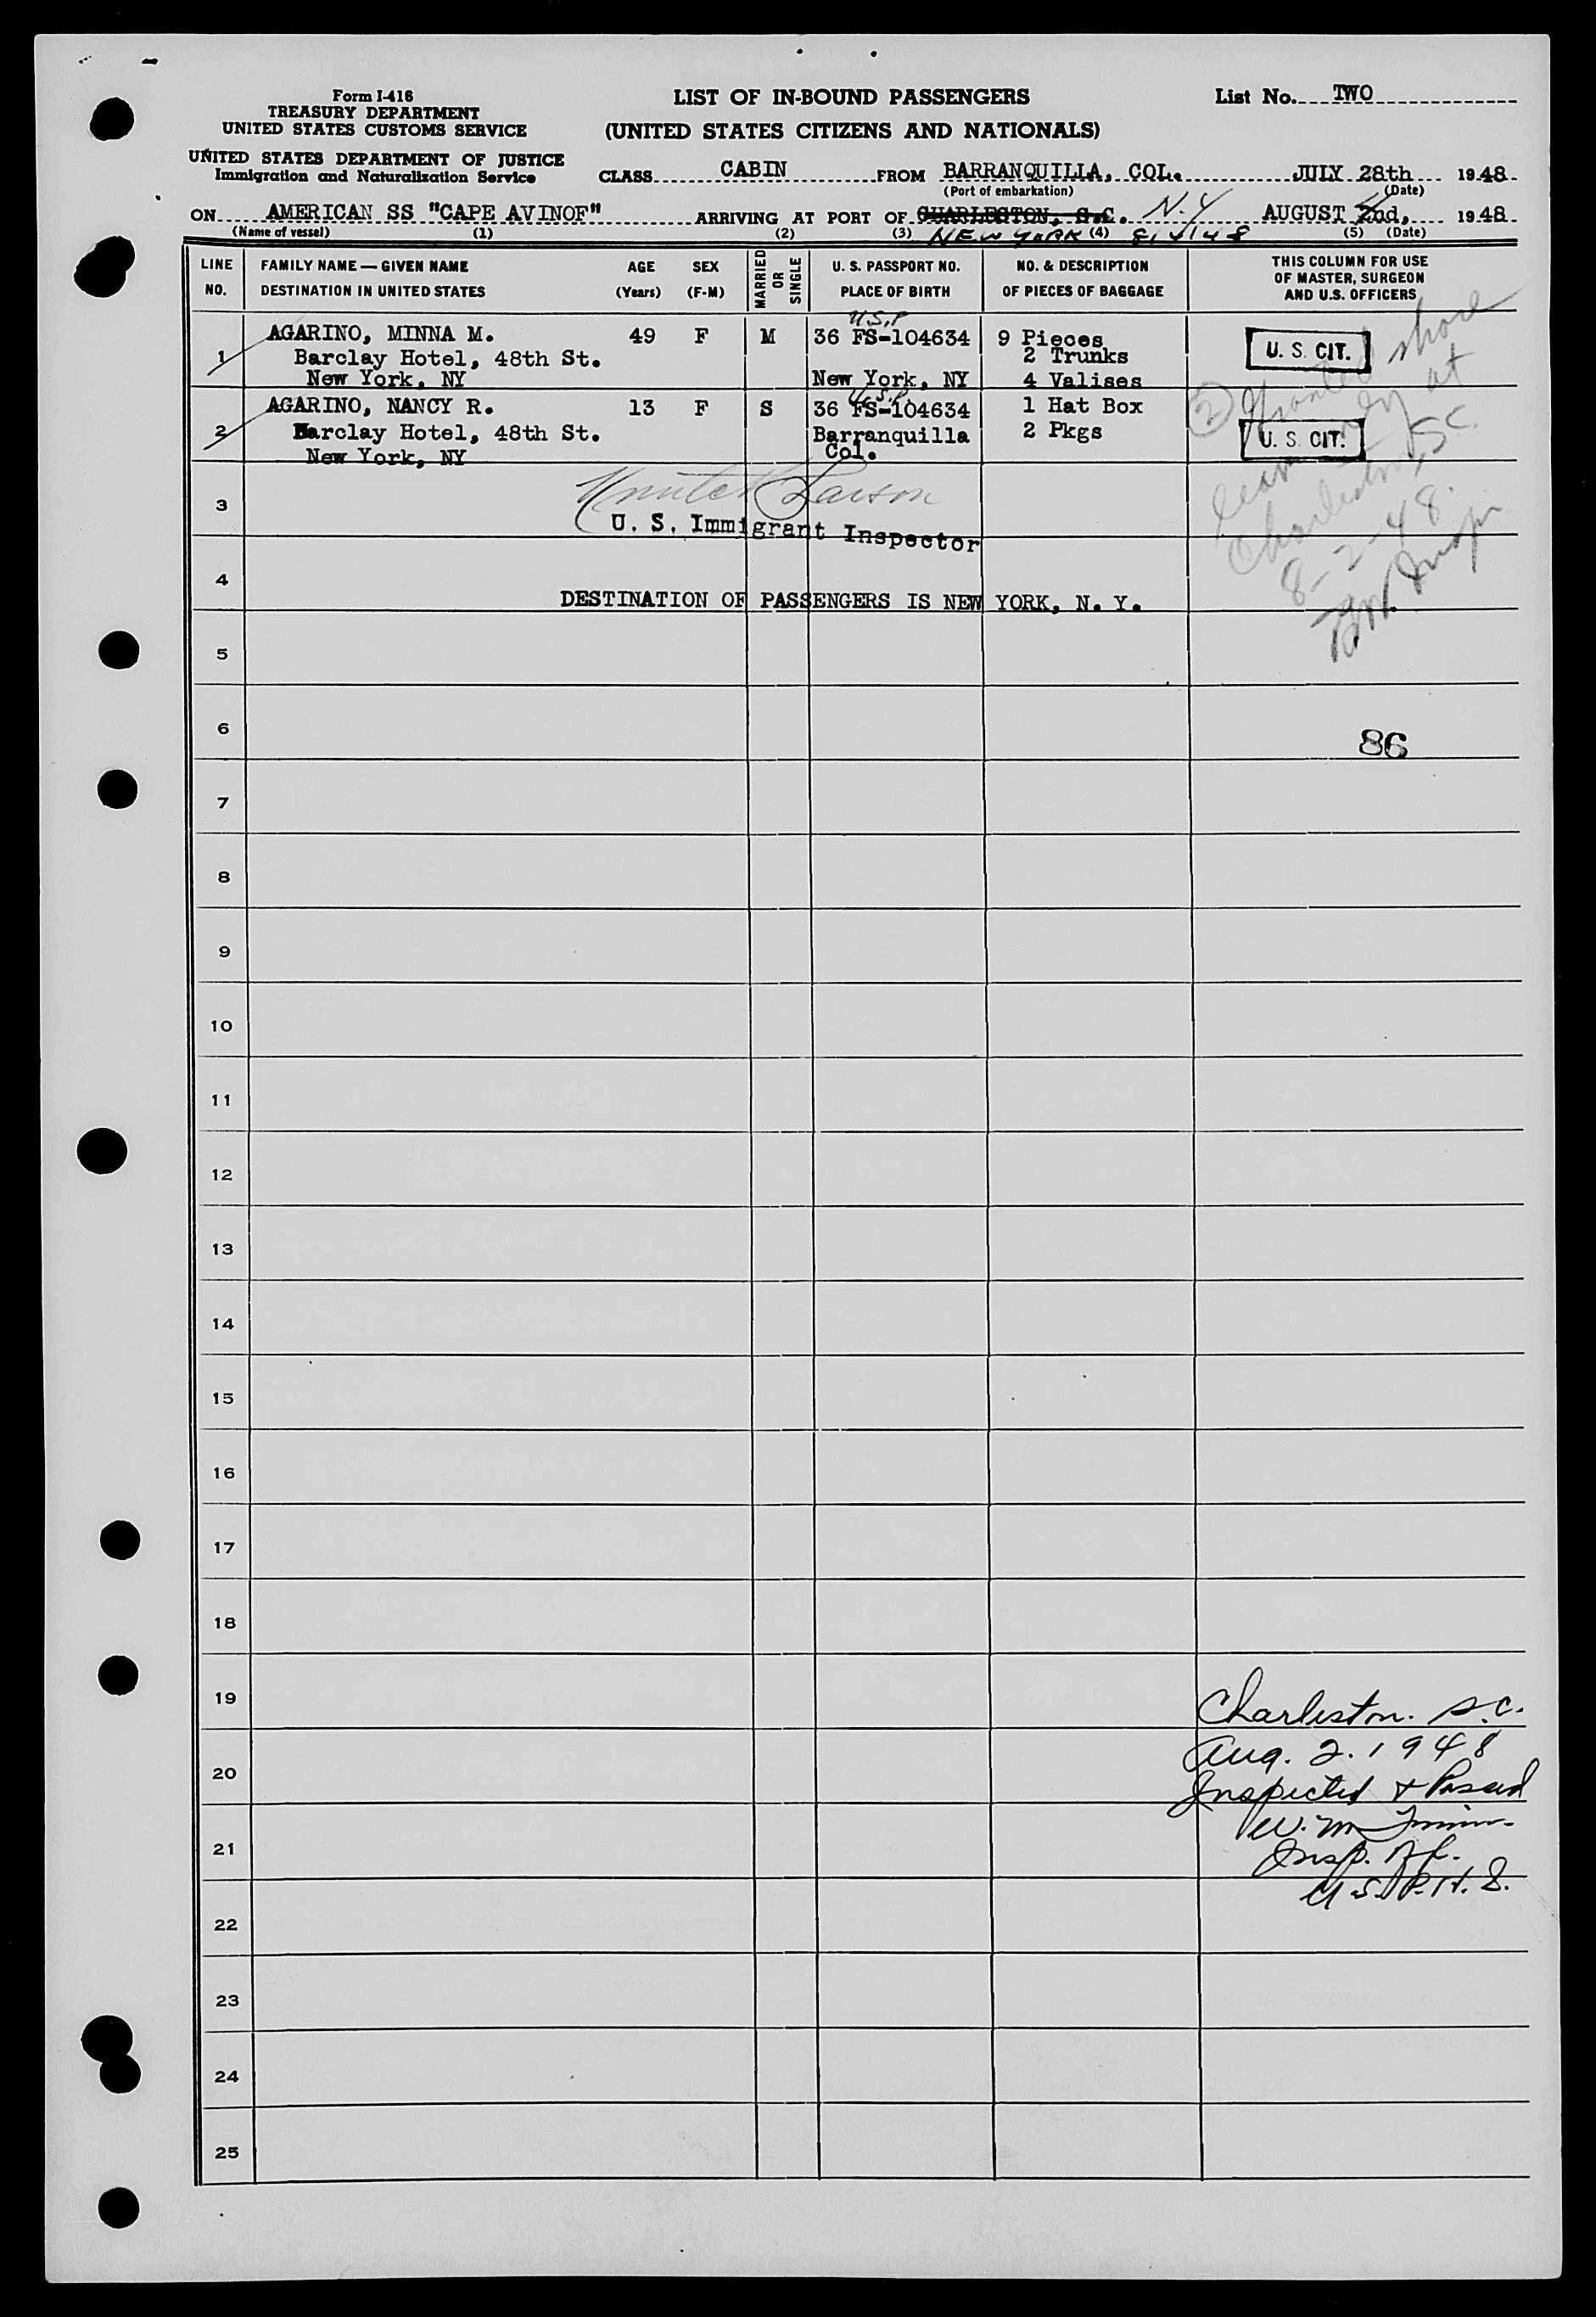 Form I-416
TREASURY DEPARTMENT
UNITED STATES CUSTOMS SERVICE
UNITED STATES DEPARTMENT OF JUSTICE
Immigration and Naturalization Service
LIST OF IN-BOUND PASSENGERS
(UNITED STATES CITIZENS AND NATIONALS)
List No. TWO
CLASS CABIN FROM BARRANQUILLA, COL. JULY 28th 1948
(Port of embarkation) (Date)
ON AMERICAN SS "CAPE AVINOF" ARRIVING AT PORT OF CHARLESTON, S.C. N.Y AUGUST 2nd, 4 1948
(Name of vessel) (1) (2) (3) NEW YORK (4) 8/4/48 (5) (Date)
LINE NO.
FAMILY NAME — GIVEN NAME
DESTINATION IN UNITED STATES
AGE (Years)
SEX (F-M)
MARRIED OR SINGLE
U. S. PASSPORT NO.
PLACE OF BIRTH
NO. & DESCRIPTION
OF PIECES OF BAGGAGE
THIS COLUMN FOR USE
OF MASTER, SURGEON
AND U.S. OFFICERS
U.S.P
1 AGARINO, MINNA M. 49 F M 36 FS-104634 9 Pieces U. S. CIT.
Barclay Hotel, 48th St. 2 Trunks
New York, NY New York, NY 4 Valises
U.S.P.
2 AGARINO, NANCY R. 13 F S 36 FS-104634 1 Hat Box U. S. CIT.
Barclay Hotel, 48th St. Barranquilla 2 Pkgs
New York, NY Col.
(2) Granted shore
leave at
Charleston, SC
8-2-48
Insp
3
Larson
U. S. Immigrant Inspector
4
DESTINATION OF PASSENGERS IS NEW YORK, N. Y.
5
6
86
7
8
9
10
11
12
13
14
15
16
17
18
19
Charleston. S.C.
20
Aug. 2. 1948
Inspected & Passed
21
W. M.
Insp.
U.S.P.H.S.
22
23
24
25